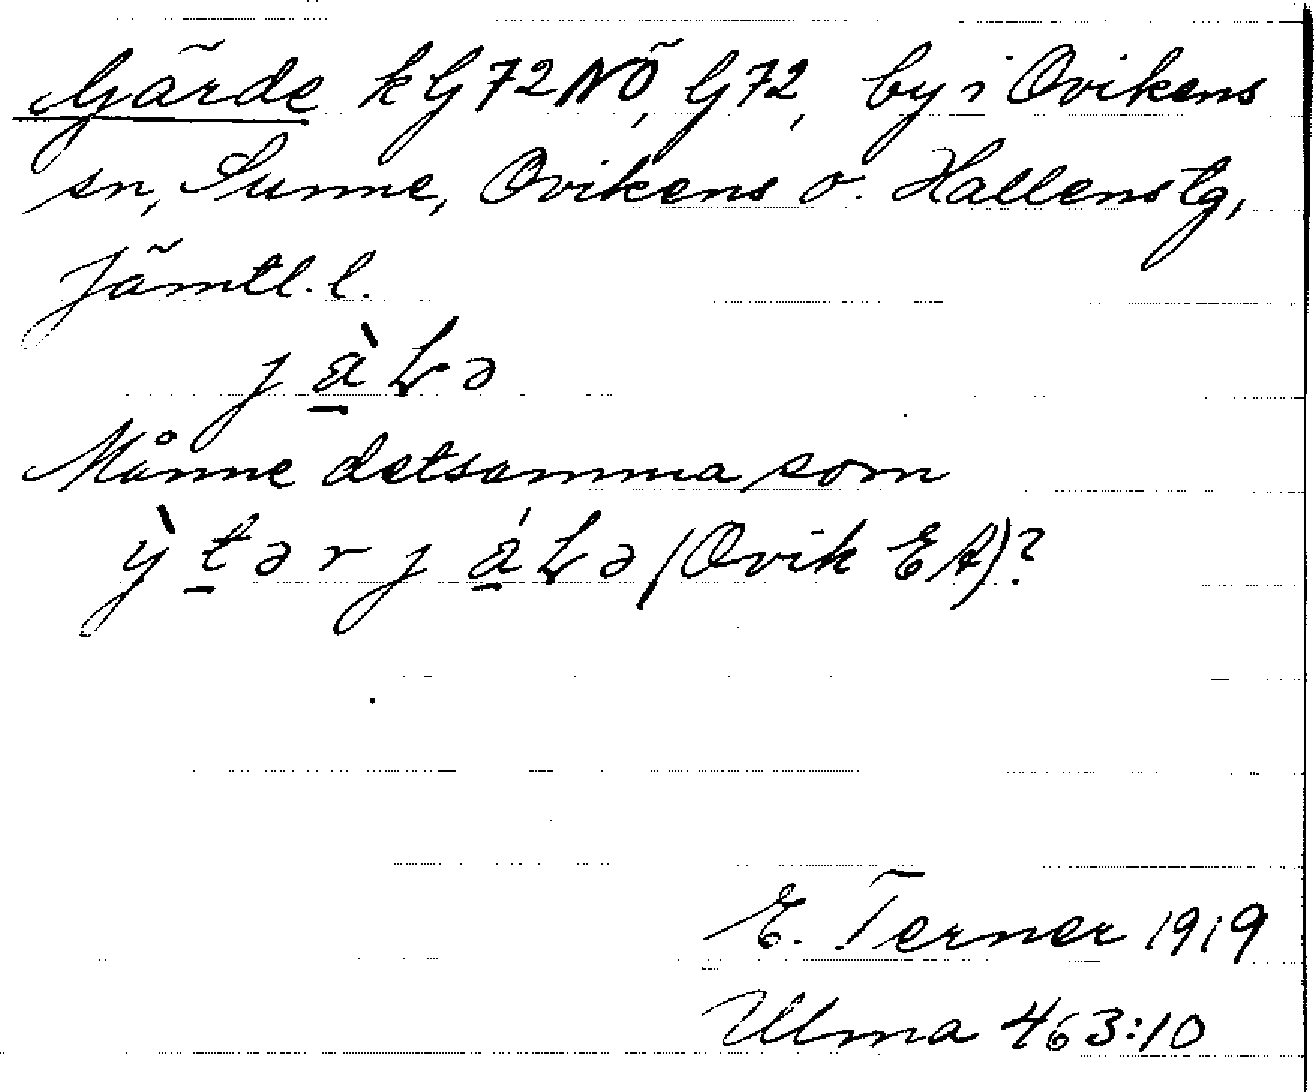 Gärde kG72NÖ, G72, by i Ovikens
sn, Sunne, Ovikens o. Hallens tg,
Jämtl. l.
j à̱ Ł ə
Månne detsamma som
ỳ ṯ ə r j á̱ Ł ə (Ovik EA)?
E. Terner 1919
Ulma 463:10